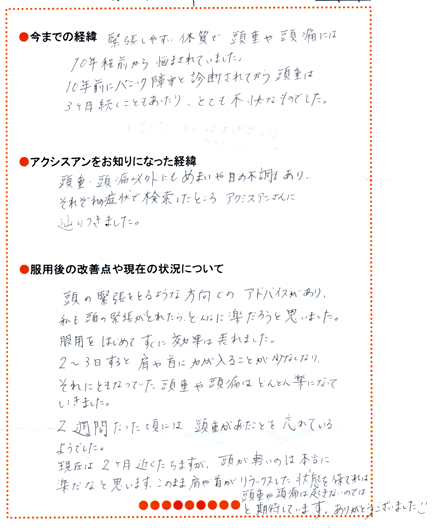 ●今までの経緯 緊張しやすい体質で 頭重や頭痛には
10年程前から悩まされていました。
10年前にパニック障害と診断されてから頭重は
3ヶ月続くこともあたり、とても不快なものでした。
●アクシスアンをお知りになった経緯
頭重・頭痛以外にもめまいや目の不調もあり、
それぞれの症状で検索したところ アクシスアンさんに
辿りつきました。
●服用後の改善点や現在の状況について
頭の緊張をとるような方向でのアドバイスがあり、
私も頭の緊張がとれたら、どんなに楽だろうと思いました。
服用をはじめてすぐに効果は表れました。
2～3日すると肩や首に力が入ることが少なくなり、
それにともなって 頭重や頭痛はどんどん楽になって
いきました。
2週間たった頃には 頭重があったことを忘れている
ようでした。
現在は2ヶ月近くたちますが、頭が軽いのは本当に
楽だなと思います。このまま肩や首がリラックスした状態を保てれば
頭重や頭痛は起きないのでは
と期待しています。ありがとうございました